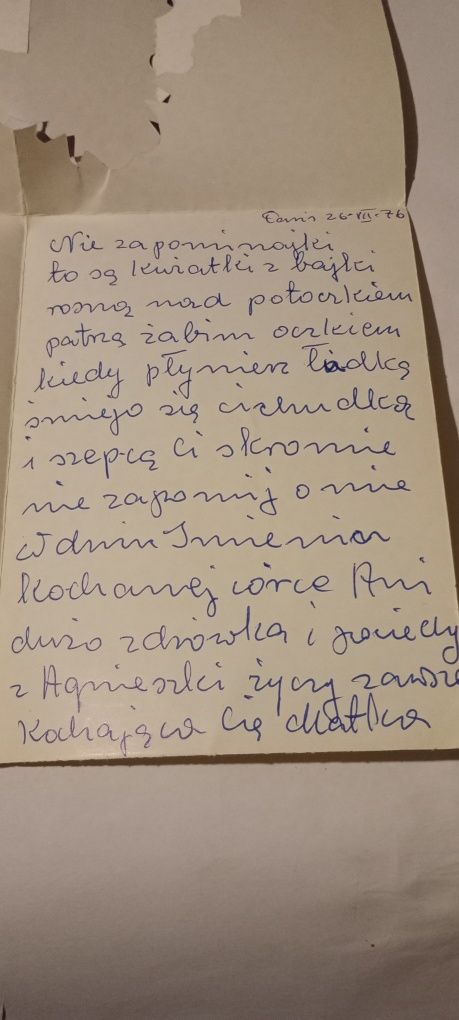 26-VII-76
Nie zapominajki
to są kwiatki z bajki
rosną nad potoczkiem
patrzą żabim oczkiem
kiedy płyniesz łudką
śmieją się cichudką
i szepcą Ci skromnie
nie zapomnij o mnie
W dniu Imienin
kochanej córce Ani
dużo zdrówka i pociechy
z Agnieszki życzy zawsze
Kochająca Cię Matka